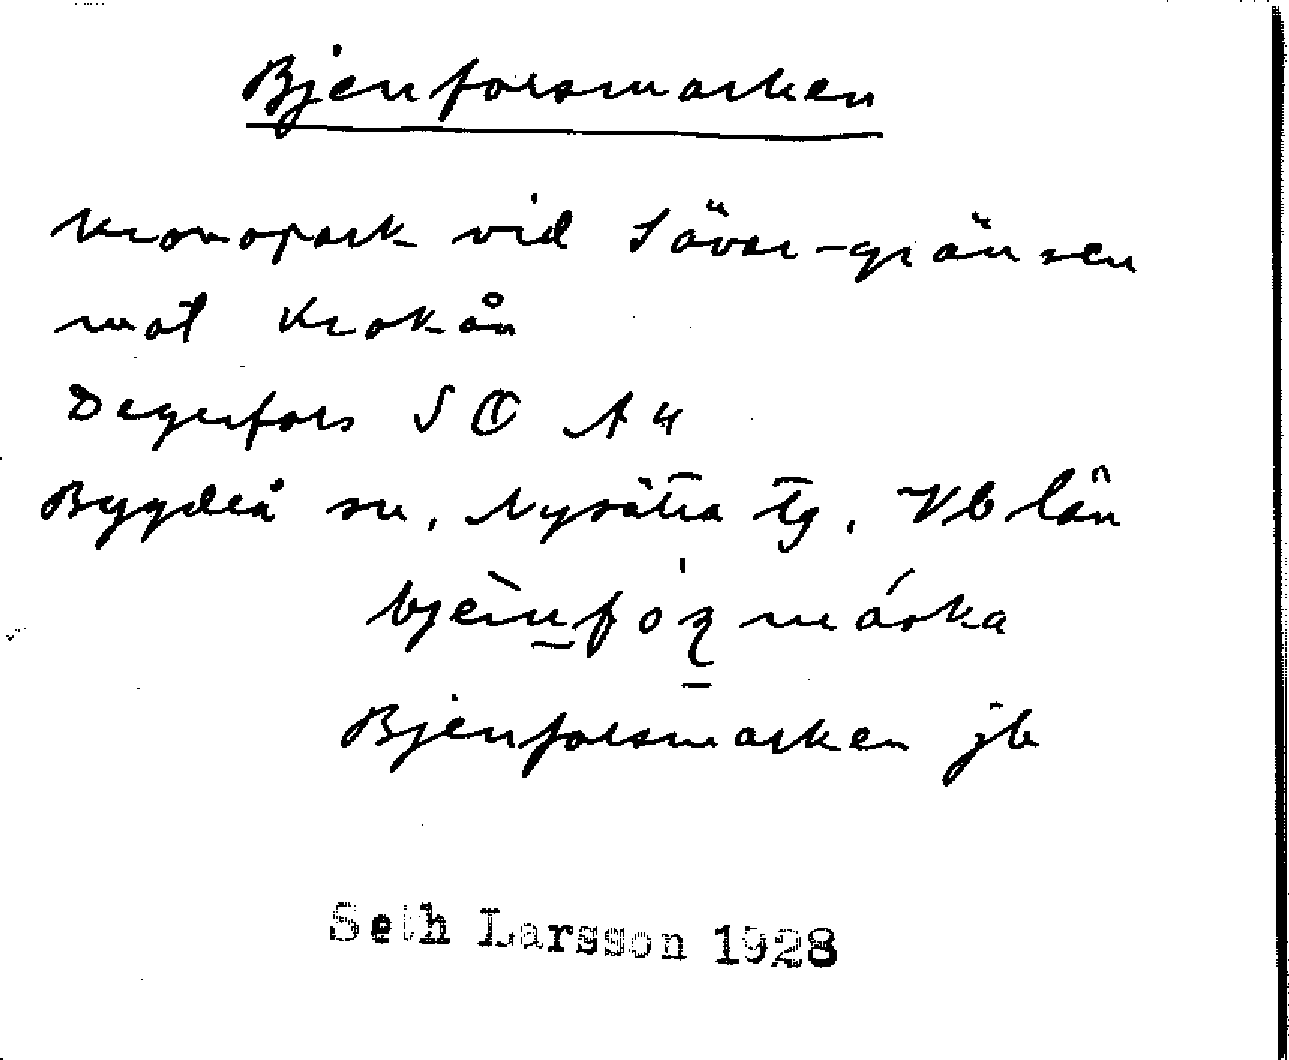 Bjenforsmarken
Kronopark vid Sävar-gränsen
mot Krokån
Degerfors SO A4
Bygdeå sn, Nysätra tg, Vb län
Bjenforsmarken jb
Seth Larsson 1928